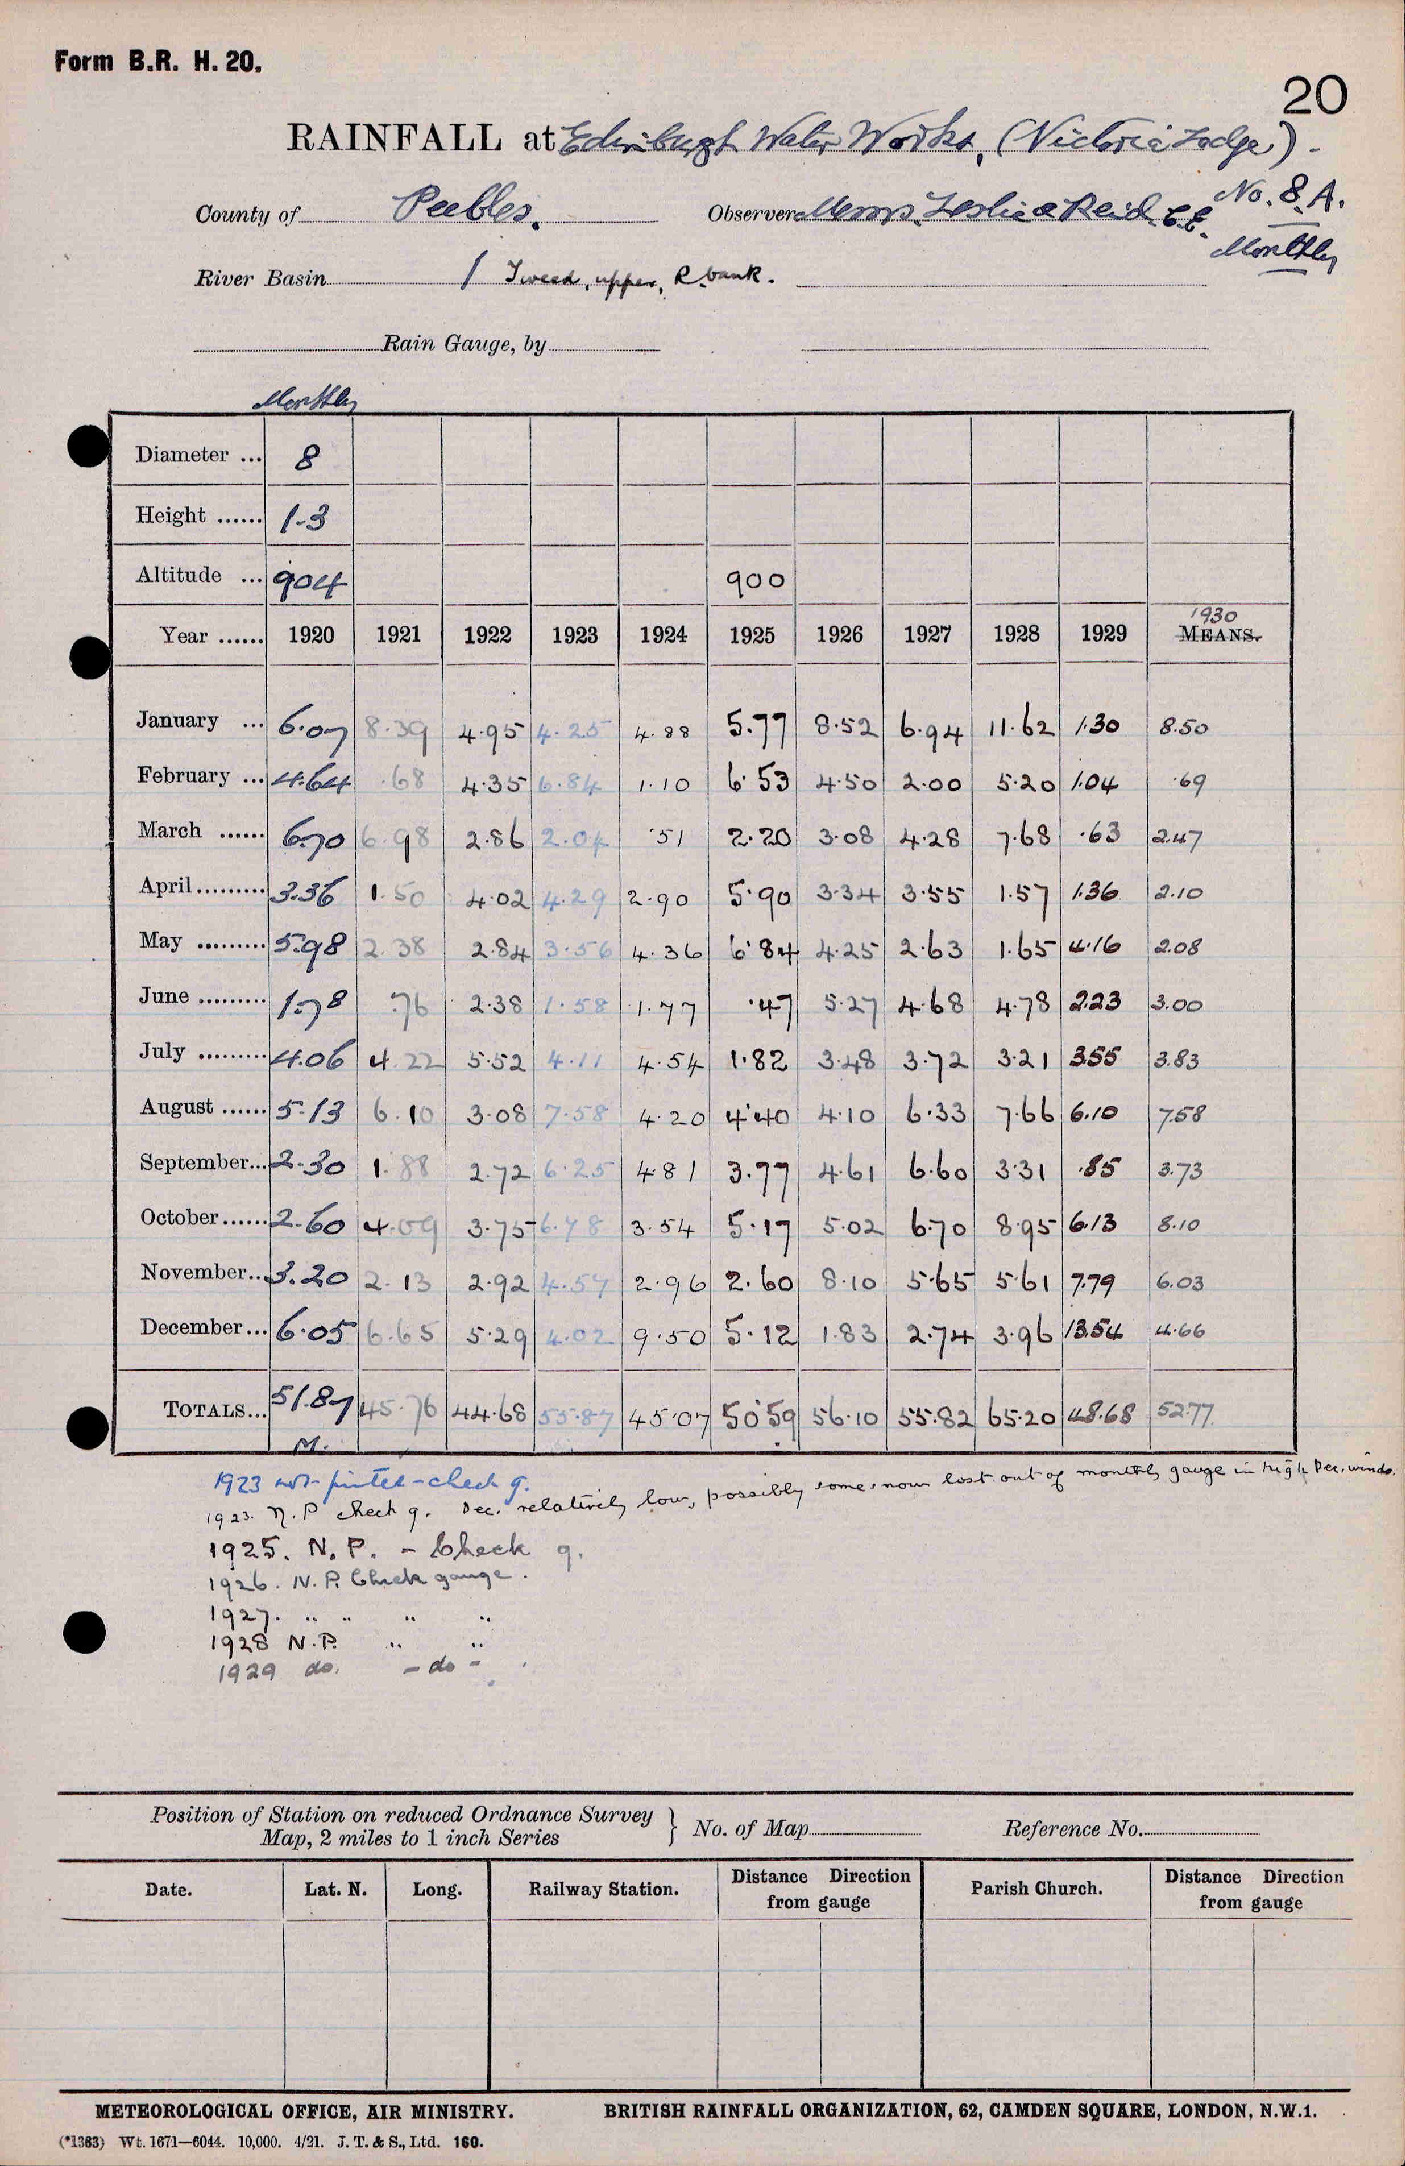 Form B.R. H. 20.
20
RAINFALL at Edinburgh Water Works, (Victoria Lodge) -
No. 8 A.
County of Peebles. Observers Messrs. Leslie & Reid C.E.
Monthly
River Basin / Tweed, upper, R. bank.
Rain Gauge, by
Monthly
Diameter ... 8
Height ...... 1-3
Altitude ... 904 900
Year ...... 1920 1921 1922 1923 1924 1925 1926 1927 1928 1929 1930 MEANS.
January ... 6.07 8.39 4.95 4.25 4.88 5.77 8.52 6.94 11.62 1.30 8.50
February ... 4.64 .68 4.35 6.84 1.10 6.53 4.50 2.00 5.20 1.04 .69
March ...... 6.70 6.98 2.86 2.04 .51 2.20 3.08 4.28 7.68 .63 2.47
April......... 3.36 1.50 4.02 4.29 2.90 5.90 3.34 3.55 1.57 1.36 2.10
May ......... 5.98 2.38 2.84 3.56 4.36 6.84 4.25 2.63 1.65 4.16 2.08
June ......... 1.78 .76 2.38 1.58 1.77 .47 5.27 4.68 4.78 2.23 3.00
July ......... 4.06 4.22 5.52 4.11 4.54 1.82 3.48 3.72 3.21 3.55 3.83
August ...... 5.13 6.10 3.08 7.58 4.20 4.40 4.10 6.33 7.66 6.10 7.58
September... 2.30 1.88 2.72 6.25 4.81 3.77 4.61 6.60 3.31 .85 3.73
October...... 2.60 4.09 3.75 6.78 3.54 5.17 5.02 6.70 8.95 6.13 8.10
November... 3.20 2.13 2.92 4.57 2.96 2.60 8.10 5.65 5.61 7.79 6.03
December... 6.05 6.65 5.29 4.02 9.50 5.12 1.83 2.74 3.96 13.54 4.66
TOTALS... 51.87 45.76 44.68 55.87 45.07 50.59 56.10 55.82 65.20 48.68 52.77
M.
1923 not printed - check g.
1923. N.P check g. Dec. relatively low, possibly some snow lost out of monthly gauge in high Dec. winds.
1925. N.P. - Check g.
1926. N.P. Check gauge.
1927. " " " "
1928 N.P. " "
1929 do. - do -
Position of Station on reduced Ordnance Survey
Map, 2 miles to 1 inch Series } No. of Map Reference No.
Date. Lat. N. Long. Railway Station. Distance Direction from gauge Parish Church. Distance Direction from gauge
METEOROLOGICAL OFFICE, AIR MINISTRY. BRITISH RAINFALL ORGANIZATION, 62, CAMDEN SQUARE, LONDON, N.W.1.
(*1383) Wt. 1671—6044. 10,000. 4/21. J. T. & S., Ltd. 160.